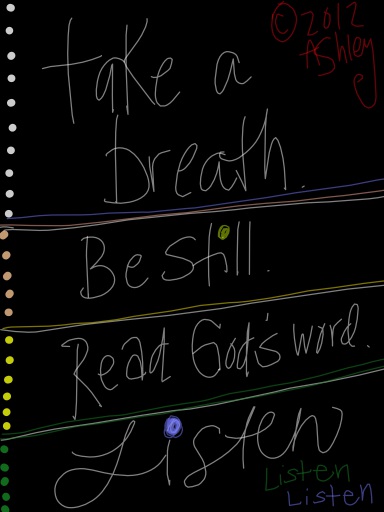 © 2012
Ashley
take a
breath.
Be still.
Read God's word.
Listen
Listen
Listen